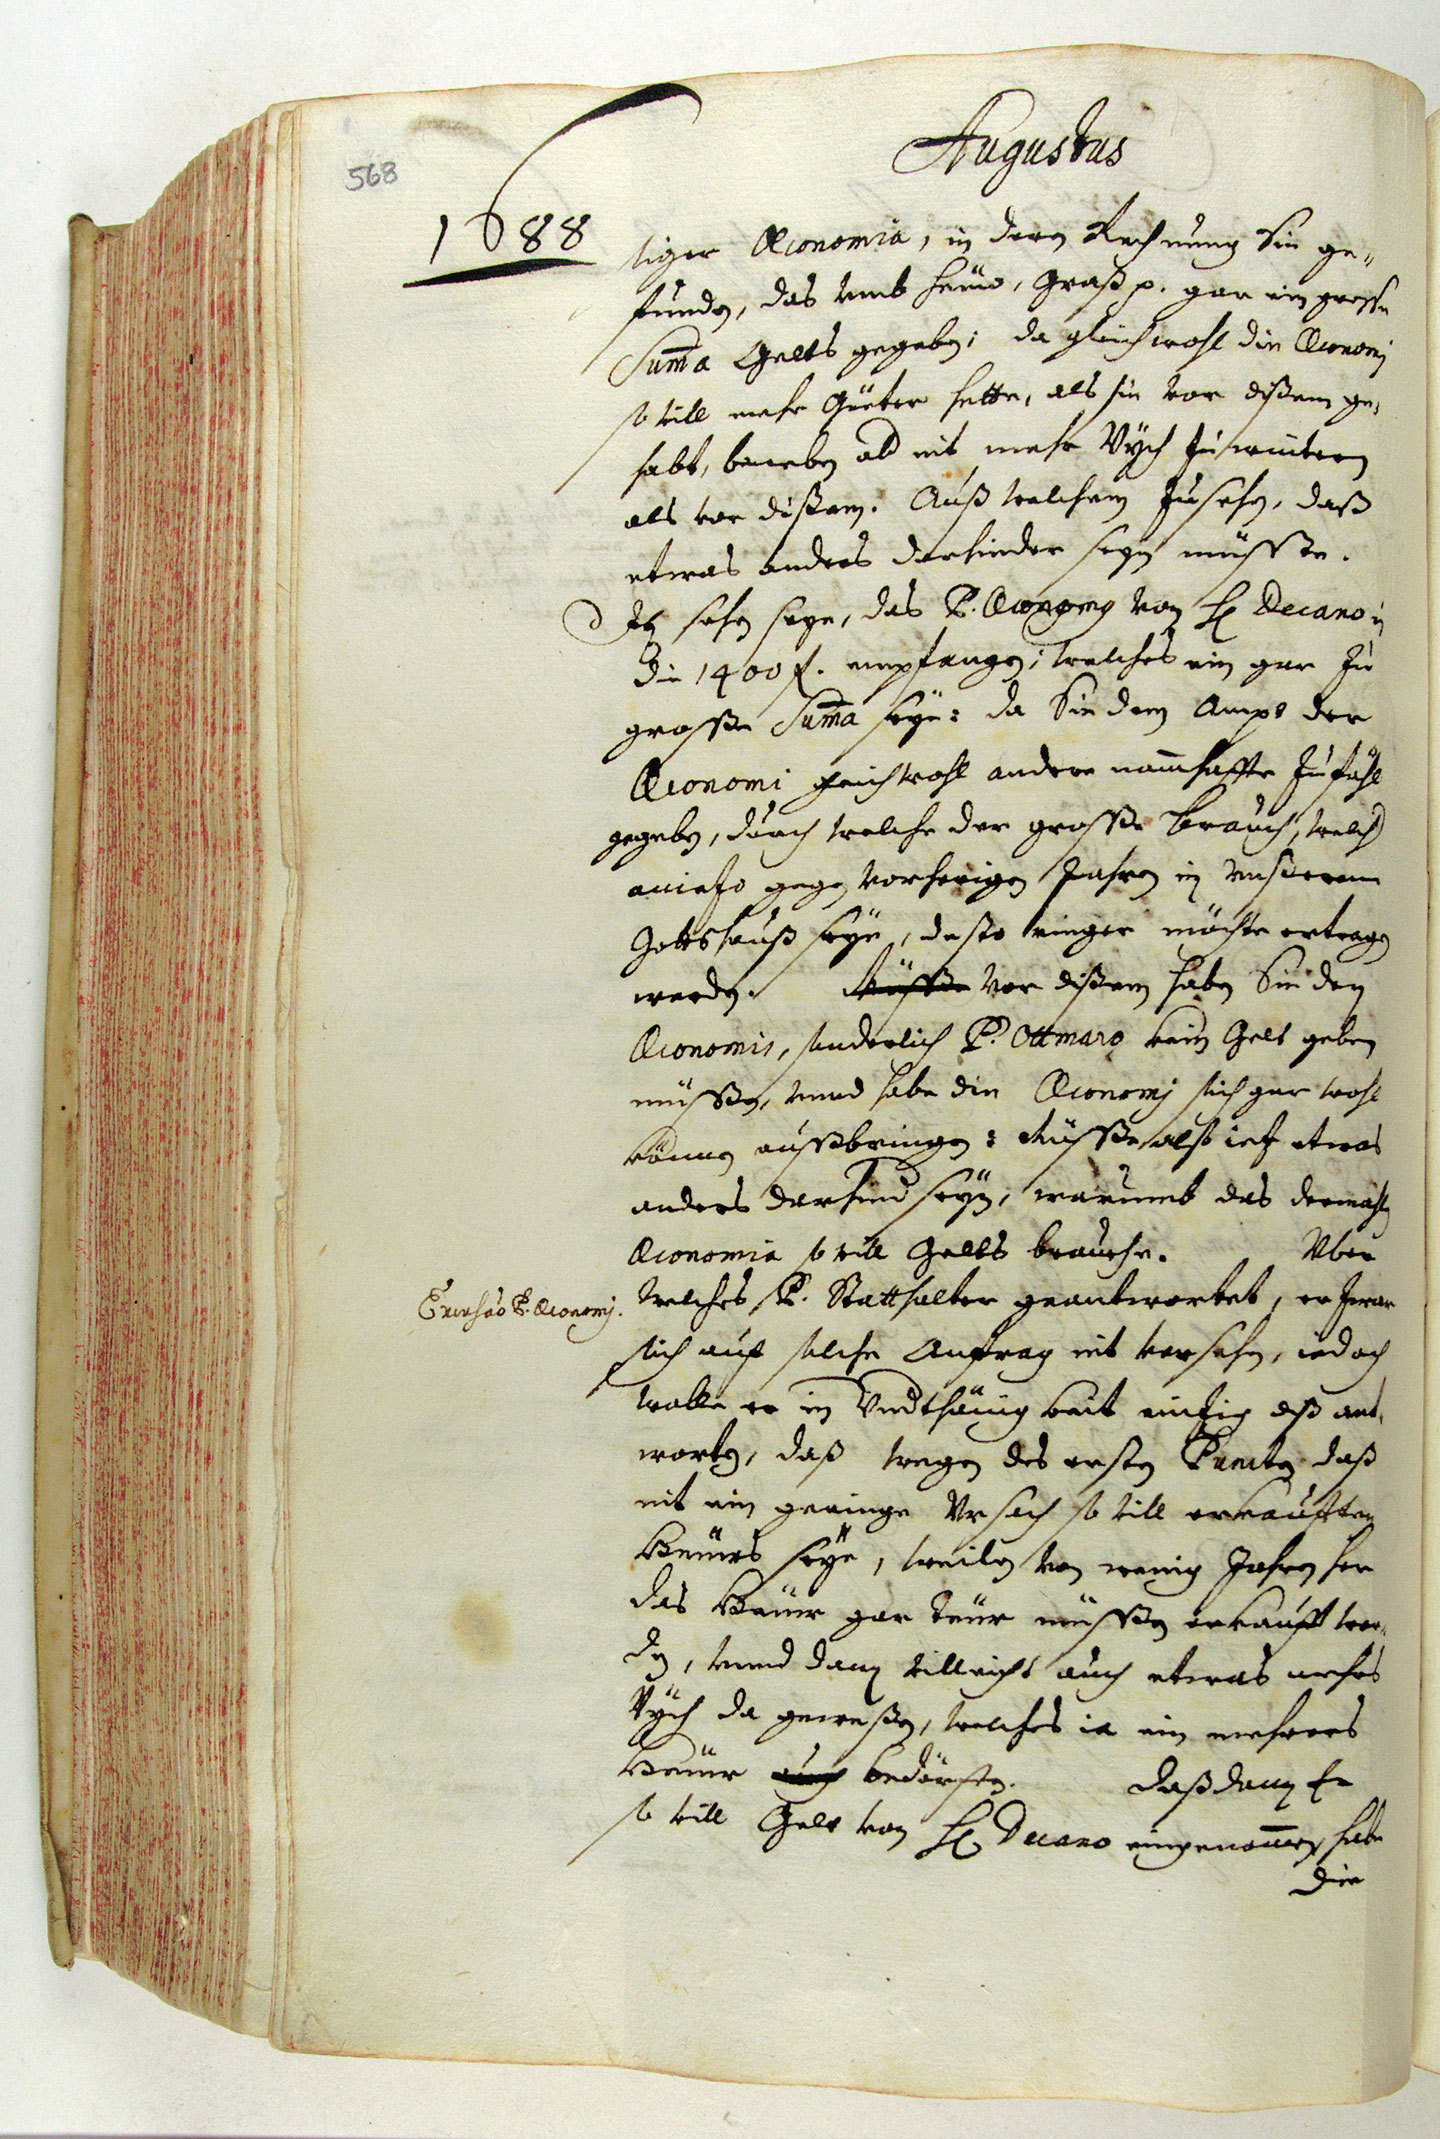 568
Augustus
1688
tiger Œconomia, in dern Rechnung Sie ge-
funden, das umb heuw, Graß p. gar ein grosse
Suma Gelts gegeben; da gleichwohl die Œconomj
so vill mehr Güeter hette, als sie vor dißem ge-
habt, beneben nit mehr Vÿch zu wintern
als vor dißem. Auß welchem zusehen, daß
etwas anders darhinder seyn müsste.
Itz sehen seye, das P. Œconomg von H Decano in
die 1400 f. empfangen; welches ein gar zu
grosse Suma seye: da Sie dem Ampt der
Œconomi gleichwohl andere nammhaffte Zufähl
gegeben, durch welche der grosse brauch, welch
aniezo gegen vorherigen Jahren in unserem
Gottshauß seÿe, desto ringer möchte ertragen
werden. Vor dißem haben Sie den
Œconomis, sonderlich P. Ottmaro kein Gelt geben
müssen, unnd habe die Œconomj sich gar wohl
können außbringen: Müsse also ietz etwas
anders darhind seÿn, warumb das dermahlen
Œconomia so vill Gelts brauche. Uber
Excusao P. Œconomj.
welches P. Statthalter geantwortet, er zwar
sich auf solche Anfrag nit versehen, iedoch
wolle er in Undthänigkeit einzig diß ant-
worten, daß wegen des ersten Puncten daß
nit ein geringe Ursach so vill erkaufften
Heuws seÿe, weilen von wenig Jahren her
das Heuw gar teur müssen erkaufft wer-
den, unnd dann villeicht auch etwas mehrs
Vÿch da gewesen, welches ia ein mehrers
Heuw bedörffen. Daß dann Er
so vill Gelt von H Decano eingenomen habe
die